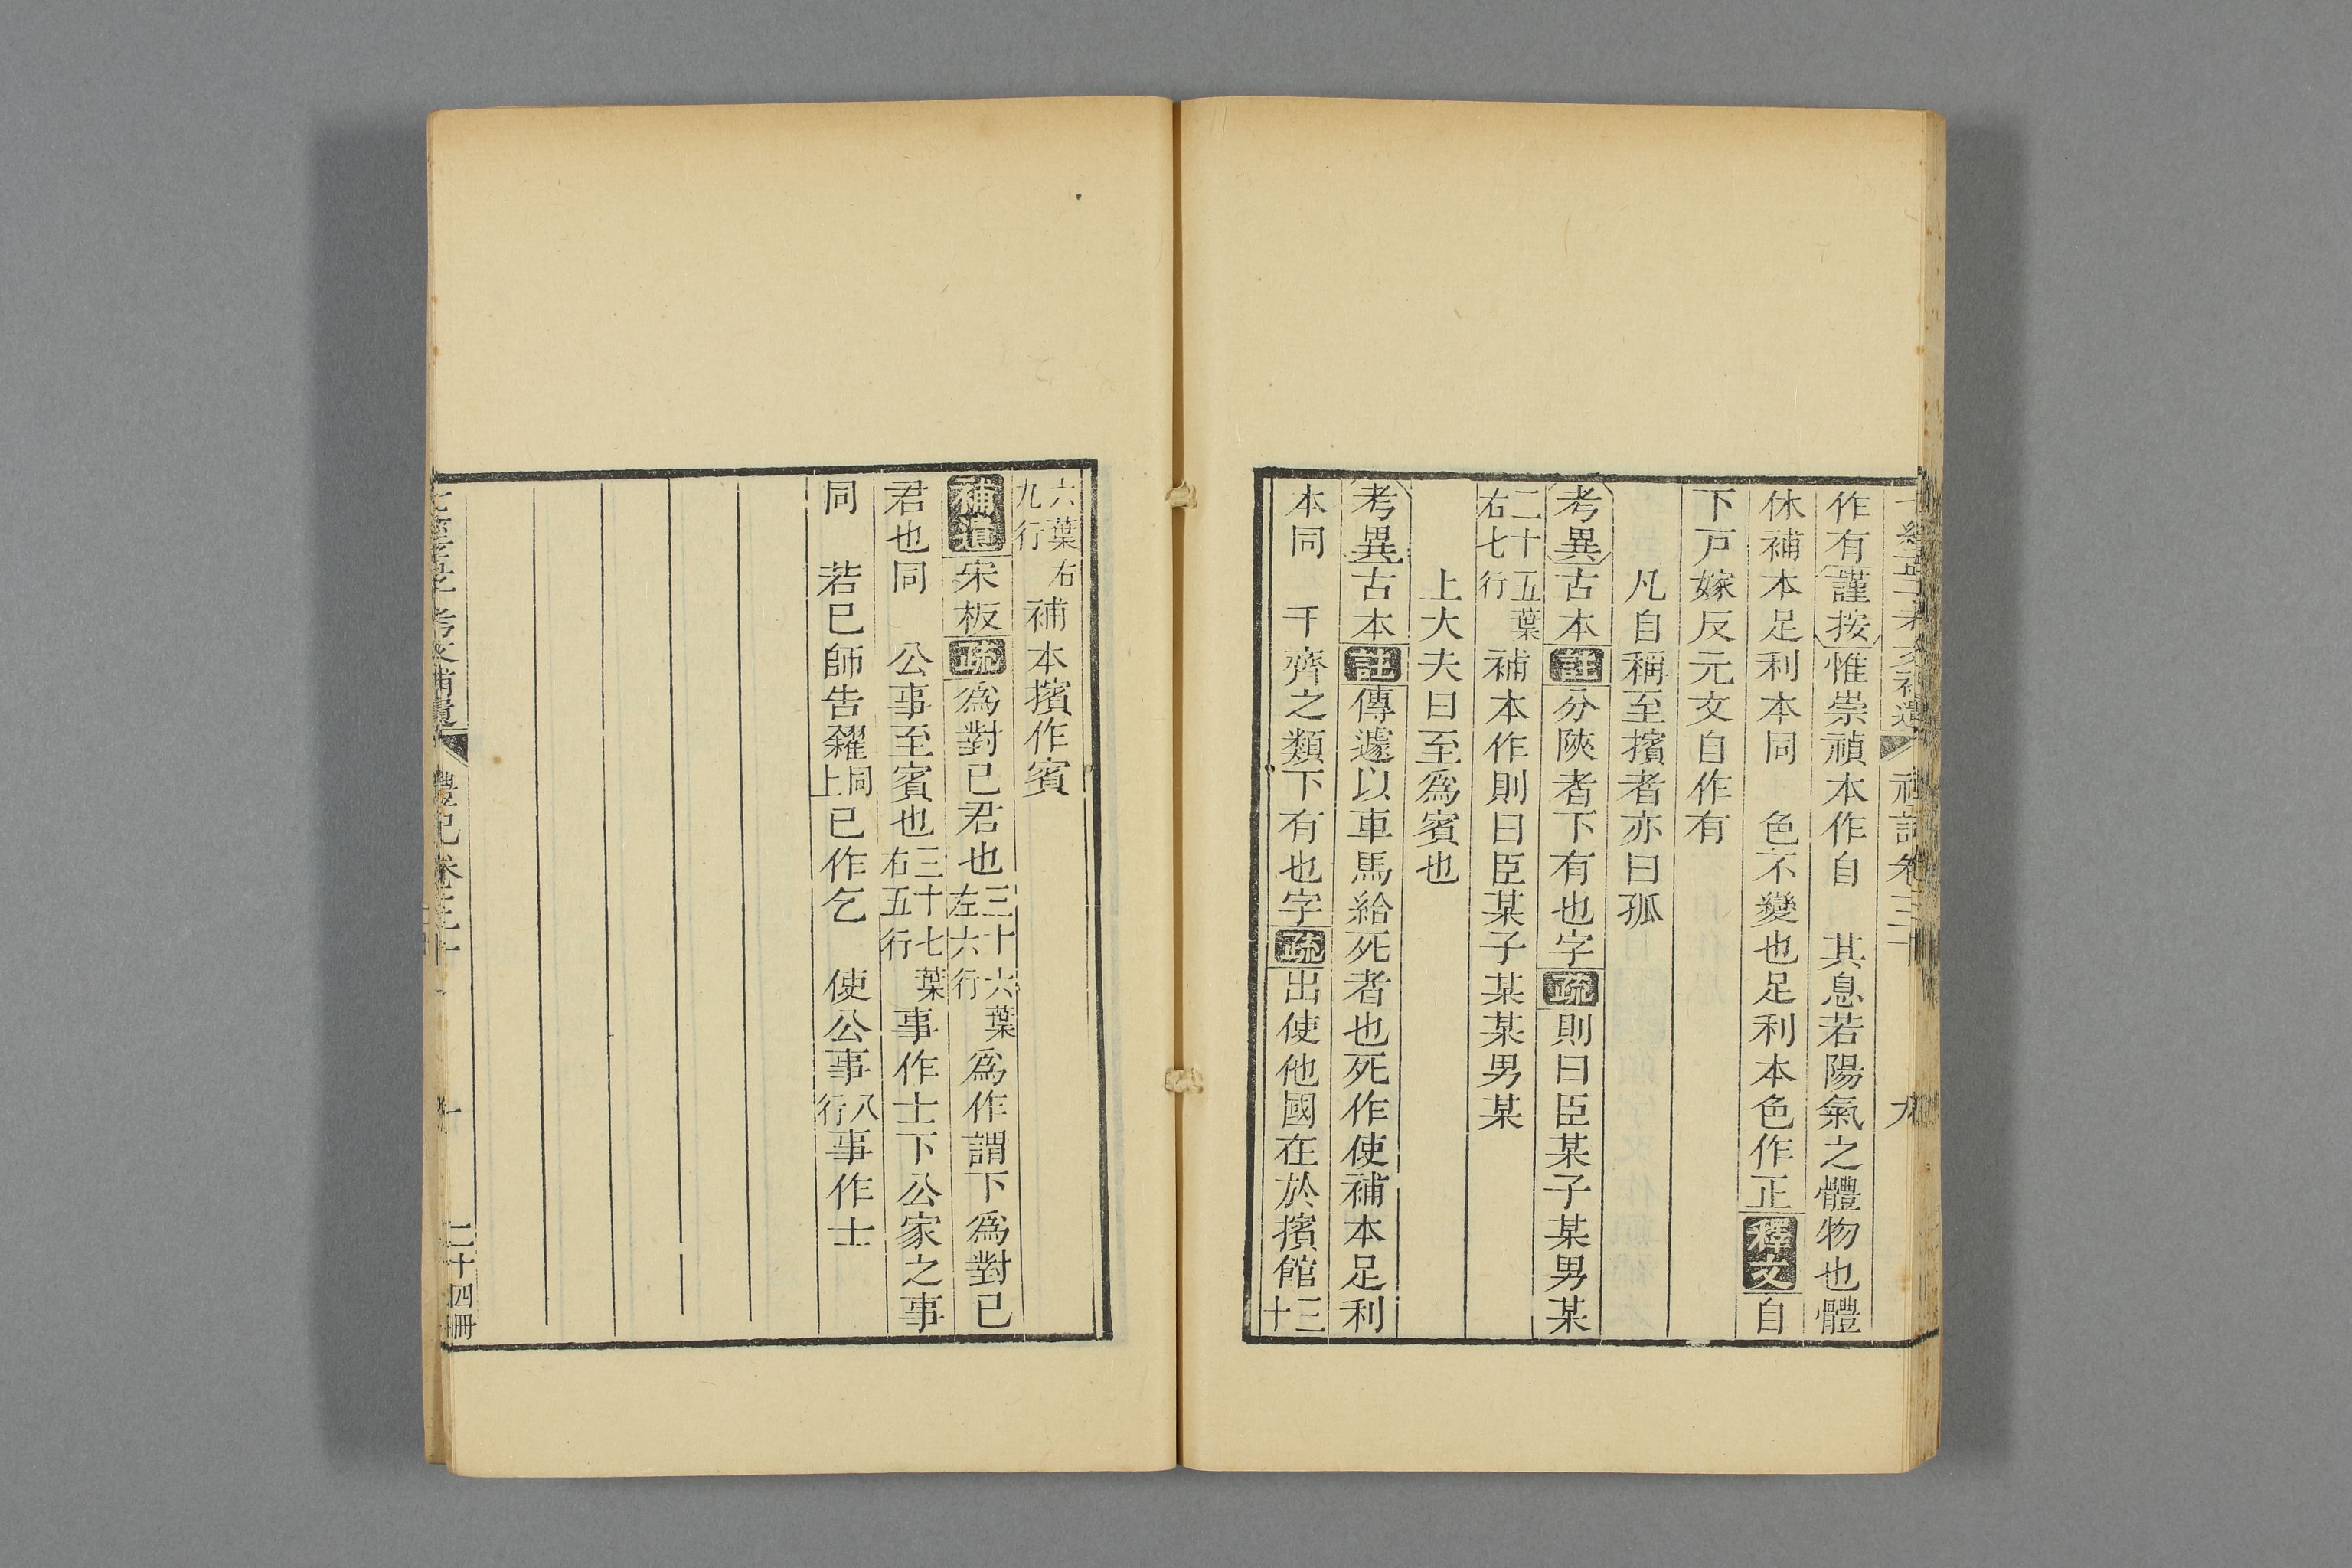 作有謹按惟崇禎本作自　其息若陽氣之體物也體
休補本足利本同　色不變也足利本色作正釋文自
下戸嫁反元文自作有
凡自稱至擯者亦曰孤
考異古本註分陝者下有也字疏則曰臣某子某男某
二十五葉右七行補本作則曰臣某子某某男某
上大夫曰至爲賓也
考異古本註傳遽以車馬給死者也死作使補本足利
本同　干齊之類下有也字疏出使他國在於擯館三十
六葉右九行補本擯作賓
補遺宋板疏爲對已君也三十六葉左六行爲作謂下爲對已
君也同　公事至賓也三十七葉右五行事作士下公家之事
同　若巳師告糴同上已作乞　使公事八行事作士
禮記卷三十
二十四冊